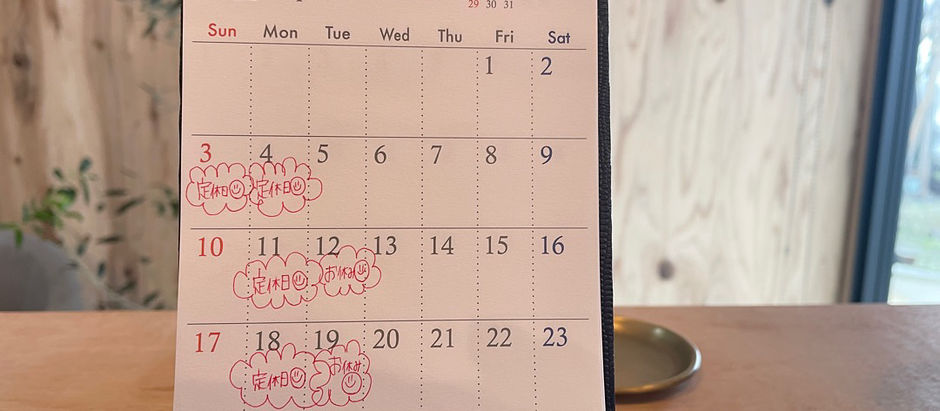 29 30 31
Sun Mon Tue Wed Thu Fri Sat
1 2
3 4 5 6 7 8 9
定休日 定休日
10 11 12 13 14 15 16
定休日 お休み
17 18 19 20 21 22 23
定休日 お休み